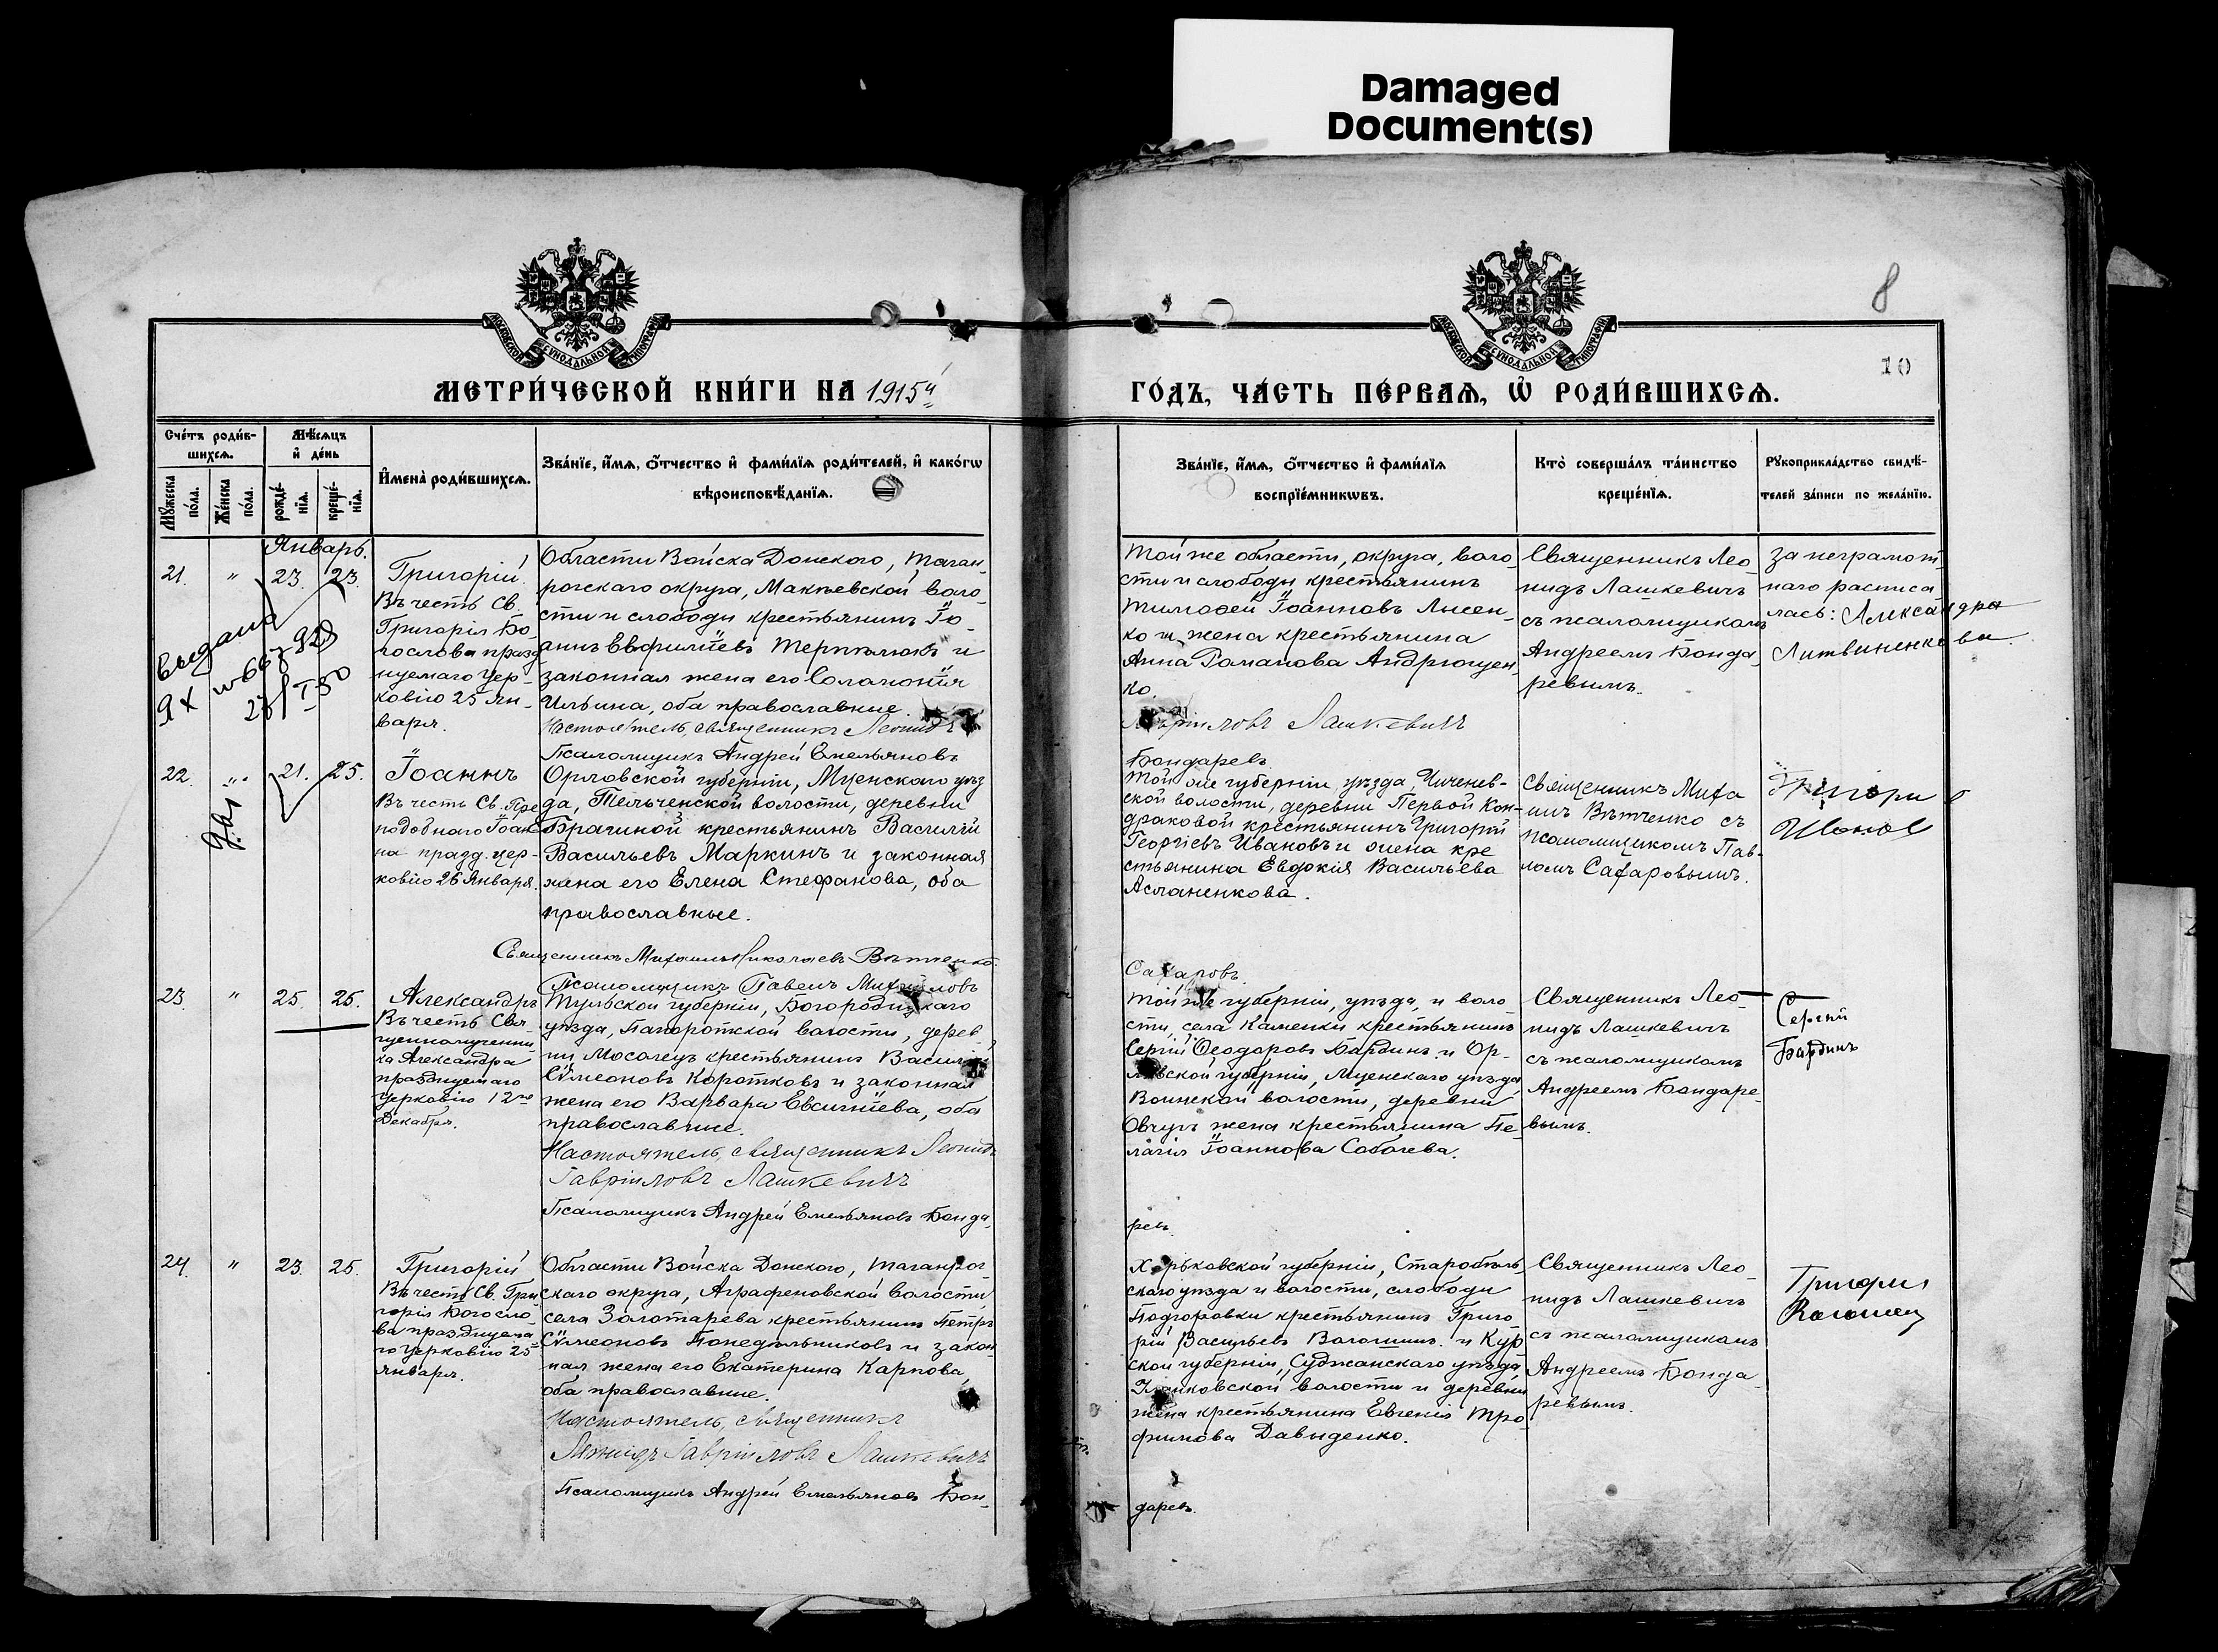 Damaged
Document(s)
8
10
МОСКОВСКОЙ СУНОДАЛЬНОЙ ТИПОГРАФІИ
МОСКОВСКОЙ СУНОДАЛЬНОЙ ТИПОГРАФІИ
МЕТРИ́ЧЕСКОЙ КНИ́ГИ НА 1915й
ГО́ДЪ, ЧА́СТЬ ПЕ́РВАѦ, Ѡ҆ РОДИ́ВШИХСѦ.
Сче́тъ роди́в-
шихсѧ.
Мꙋжеска по́ла.
Же́нска по́ла.
Мѣ́сѧцъ
и҆ де́нь
рожде́-
нїѧ.
креще́-
нїѧ.
И҆мена̀ роди́вшихсѧ.
Зва́нїе, и҆́мѧ, ѻ҆́тчество и҆ фами́лїѧ роди́телей, и҆ како́гѡ
вѣроисповѣ́данїѧ.
Зва́нїе, и҆́мѧ, ѻ҆́тчество и҆ фами́лїѧ
воспрїе́мникѡвъ.
Кто̀ соверша́лъ та́инство
креще́нїѧ.
Рꙋкоприкла́дство свидѣ́-
телей за́писи по жела́нїю.
Январь.
21. " 23. 23.
выдана
27/I 50
Григорій.
Въ честь Св.
Григорія Бо-
гослова празд
нуемаго Цер-
ковію 25 Ян-
варя.
Области Войска Донского, Таган-
рогскаго округа, Макѣевской воло-
сти и слободы крестьянинъ Іо-
аннъ Евфиміевъ Терпѣлюкъ и
законная жена его Соломонія
Ильина, оба православные.
Настоятель, священникъ Леонидъ
Псаломщикъ Андрей Емельяновъ
Той же области, округа, воло-
сти и слободы крестьянинъ
Тимофей Іоанновъ Лисен-
ко и жена крестьянина
Анна Романова Андрющен-
ко.
Гавріиловъ Лашкевичъ
Бондаревъ.
Священникъ Лео-
нидъ Лашкевичъ
съ псаломщикомъ
Андреемъ Бонда-
ревымъ.
За неграмот-
наго расписа
лась: Александра
Литвиненкова
22. " 21. 25.
Іоаннъ
Въ честь Св. Пре
подобнаго Іоан
на празд. цер-
ковію 26 Января.
Орловской губерніи, Мценскаго уѣз
да, Тельченской волости, деревни
Брагиной крестьянинъ Василій
Васильевъ Маркинъ и законная
жена его Елена Стефанова, оба
православные.
Священникъ Михаилъ Николаевъ Вѣтченко.
Псаломщикъ Павелъ Михайловъ
Той же губерніи, уѣзда, Чиченев-
ской волости, деревни Первой Кон-
драковой крестьянинъ Григорій
Георгіевъ Ивановъ и жена кре
стьянина Евдокія Васильева
Асланенкова.
Сахаровъ.
Священникъ Миха
илъ Вѣтченко съ
псаломщикомъ Пав-
ломъ Сахаровымъ.
Григори
Иванов
23 " 25. 25.
Александръ
Въ честь Свя-
щенномученни
ка Александра
празднуемаго
Церковію 12го
Декабря.
Тульской губерніи, Богородицкаго
уѣзда, Папоротской волости, дерев-
ни, Мосолецъ крестьянинъ Василій
Сѵмеоновъ Коротковъ и законная
жена его Варвара Евсигніева, оба
православные.
Настоятель, священникъ Леонидъ
Гавріиловъ Лашкевичъ
Псаломщикъ Андрей Емельяновъ Бонда-
Той же губерніи, уѣзда, и воло
сти, села Каменки крестьянинъ
Сергій Ѳеодоровъ Бардинъ и Ор-
ловской губерніи, Мценскаго уѣзда,
Воинской волости, деревни
Овчухъ жена крестьянина Пе-
лагія Іоаннова Соболева.
ревъ.
Священникъ Лео-
нидъ Лашкевичъ
съ псаломщикомъ
Андреемъ Бондаре-
вымъ.
Сергий
Бардинъ
24. " 23. 25.
Григорій
Въ честь Св. Гри
горія Богосло-
ва празднуема
го Церковію 25
Января.
Области Войска Донского, Таганрог-
скаго округа, Аграфеновской волости,
села Золотарева крестьянинъ Петръ
Сѵмеоновъ Понедѣльниковъ и закон
ная жена его Екатерина Карпова,
оба православные.
Настоятель, священникъ
Леонидъ Гавріиловъ Лашкевичъ
Псаломщикъ Андрей Емельяновъ Бон-
Харьковской губерніи, Старобѣль-
скаго уѣзда и волости, слободы
Подгоровки крестьянинъ Григо
рій Васильевъ Волошинъ и Кур
ской губерніи, Суджанскаго уѣзда,
волости и деревни
жена крестьянина Евгенія Тро-
фимова Давыденко.
даревъ.
Священникъ Лео-
нидъ Лашкевичъ
съ псаломщикомъ
Андреемъ Бонда-
ревымъ.